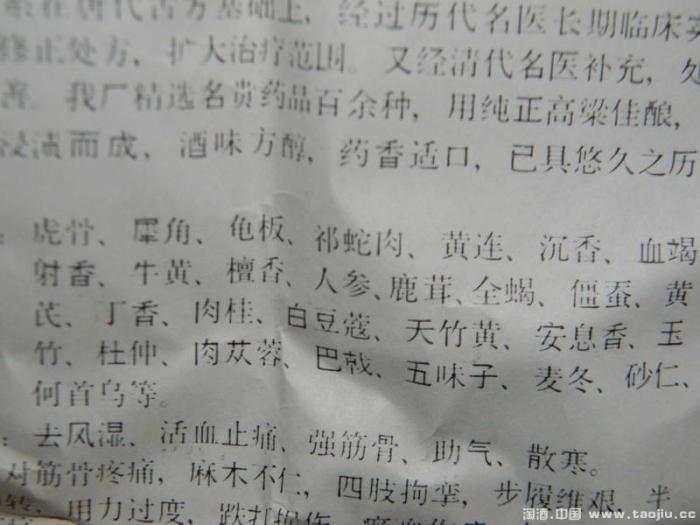 在唐代古方基础上，经过历代名医长期临床
修正处方，扩大治疗范围。又经清代名医补充，处
善。我厂精选名贵药品百余种，用纯正高梁佳酿，
浸渍而成，酒味方醇，药香适口，已具悠久之历
：虎骨、犀角、龟板、祁蛇肉、黄连、沉香、血竭
射香、牛黄、檀香、人参、鹿茸、全蝎、僵蚕、黄
芪、丁香、肉桂、白豆蔻、天竹黄、安息香、玉
竹、杜仲、肉苁蓉、巴戟、五味子、麦冬、砂仁、
何首乌等。
：去风湿、活血止痛、强筋骨、助气、散寒。
对筋骨疼痛，麻木不仁，四肢拘挛，步履维艰，半
用力过度，跌打损伤
淘酒.中国 www.taojiu.cc